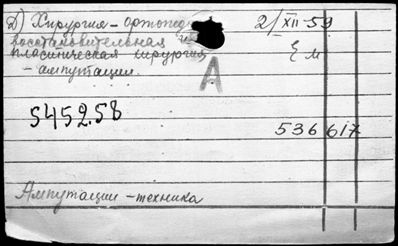 Д) Хирургия - ортопед
восстановительная и
пластическая хирургия
- ампутации.
2/XII-59
Ем
А
5452.58
536 617
Ампутации - техника